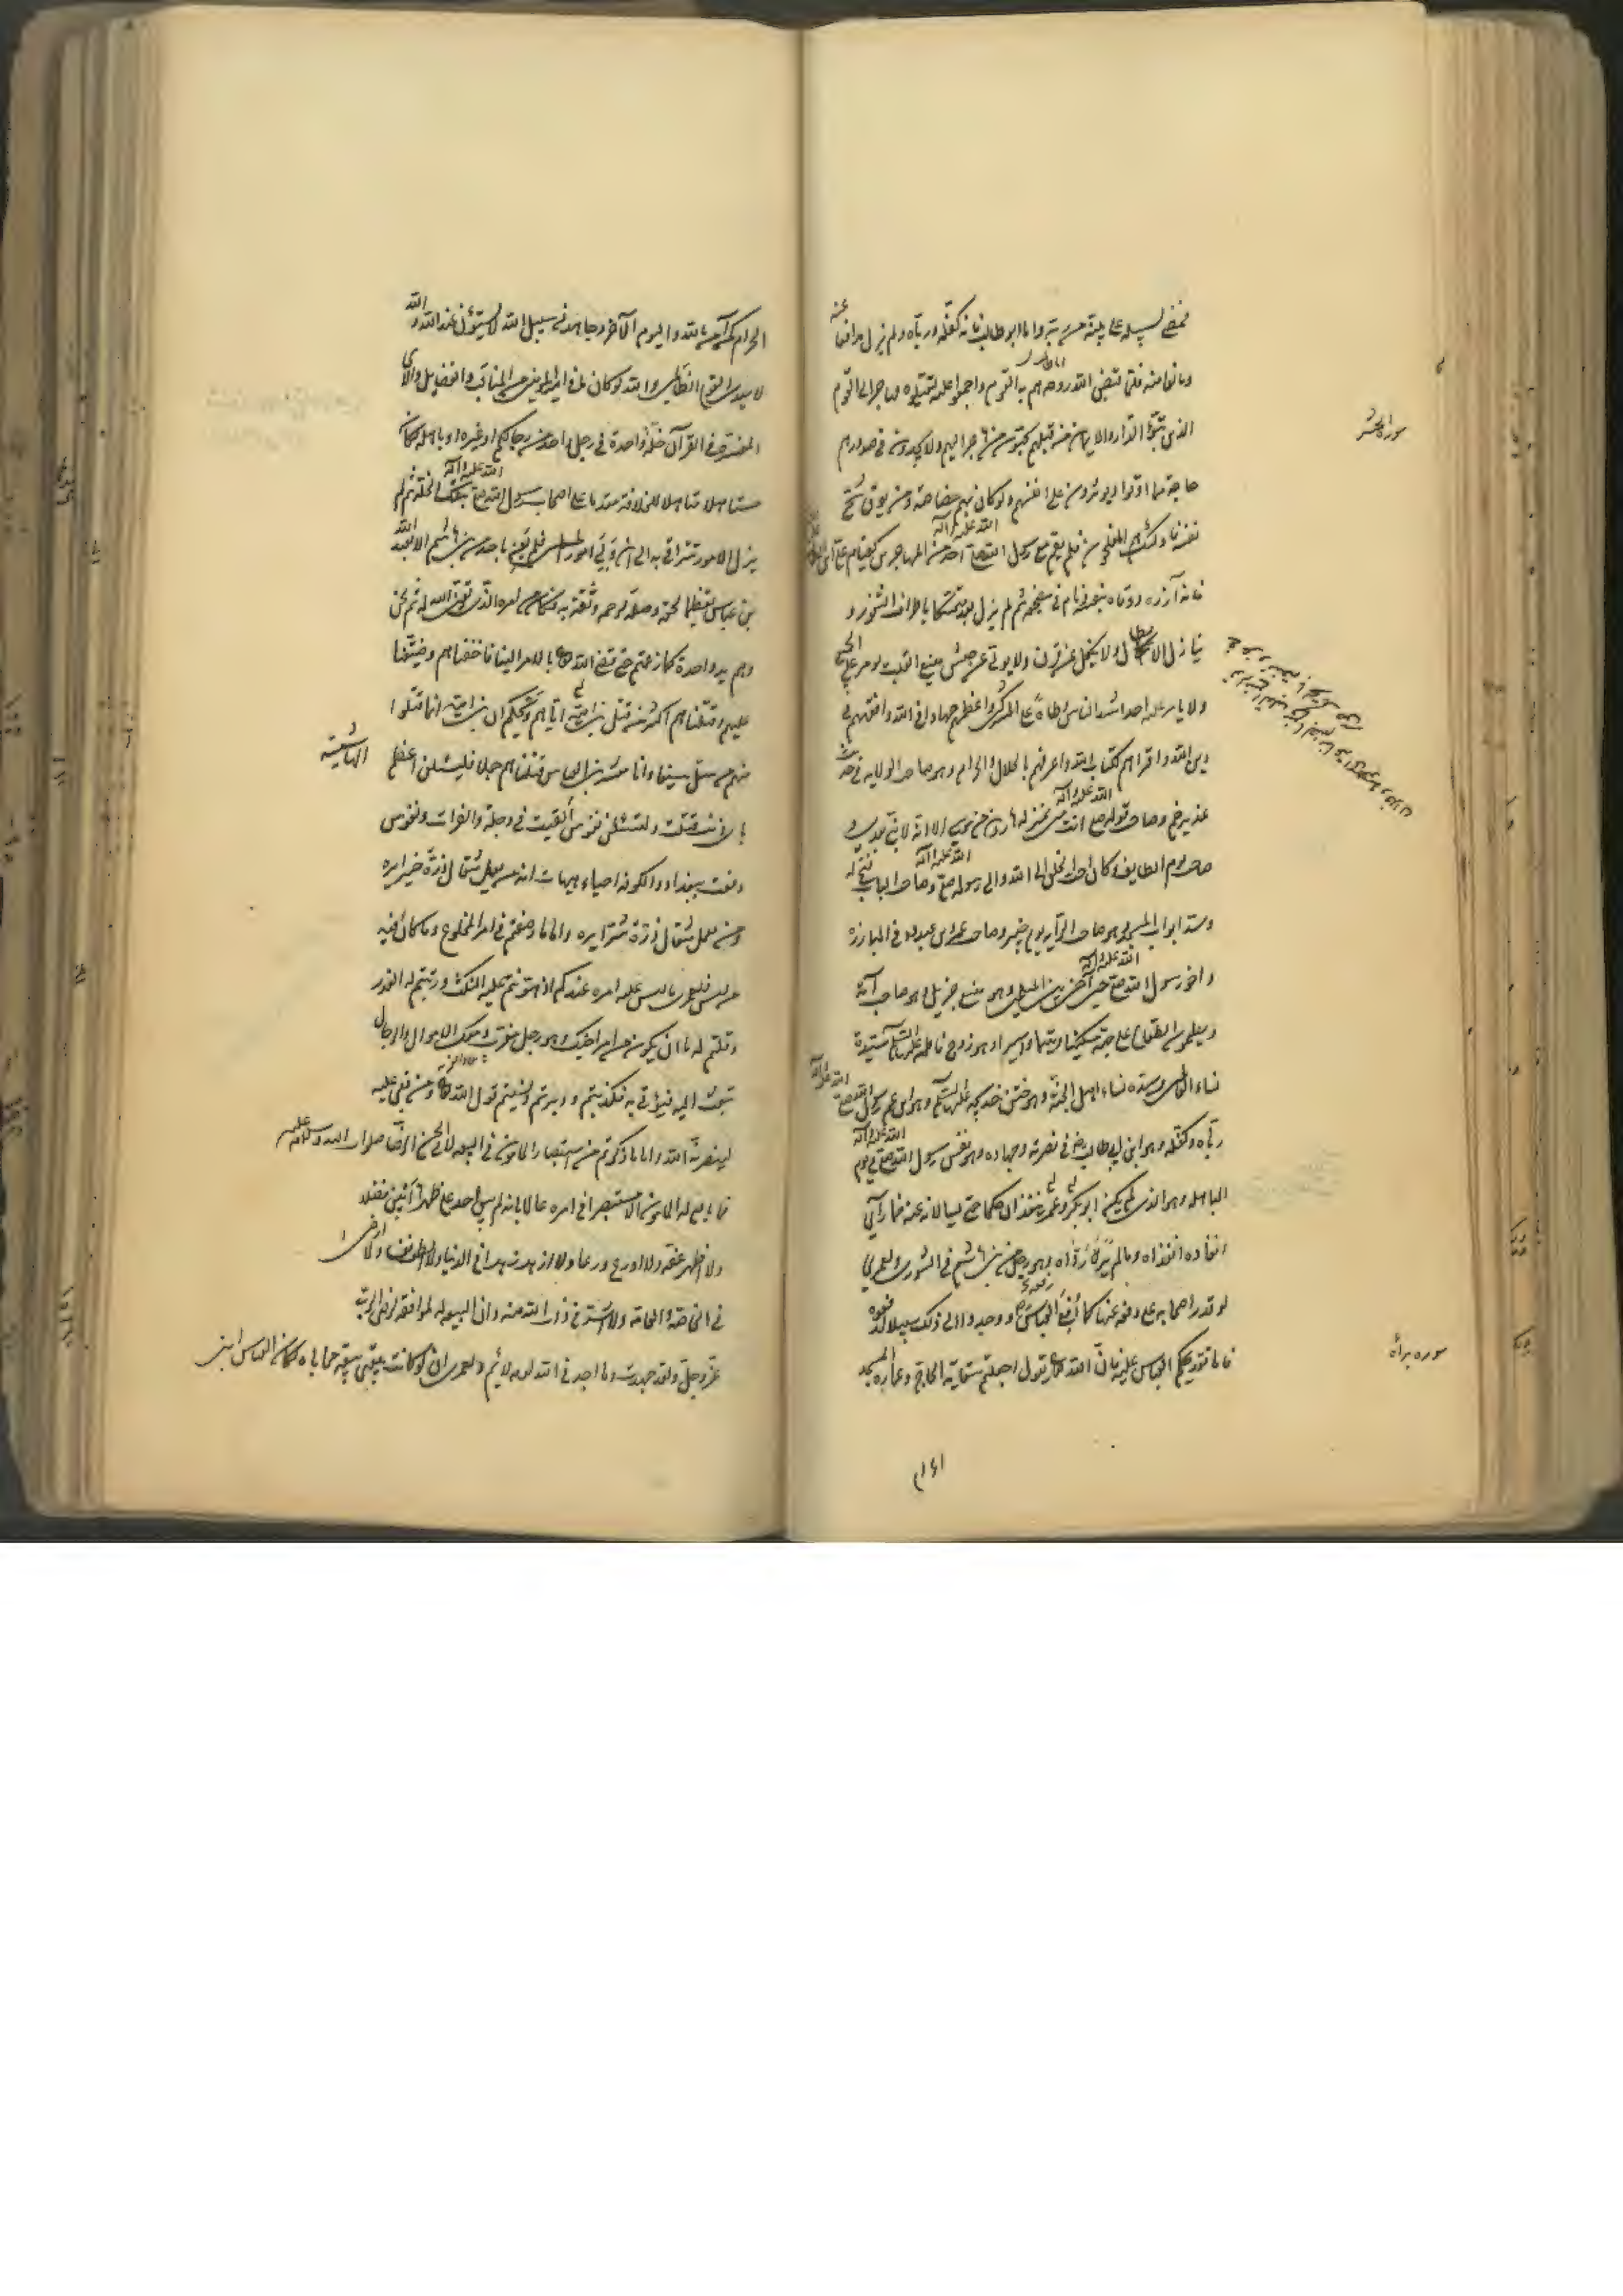 فمضى لسبيله على بينة من ربه واما ابو طالب فانه كفله ورباه ولم يزل مدافعا عنه
ومانعا منه فلما قبض الله روحه هم به القوم واجمعوا عليه ليقتلوه فهاجر الى القوم
الذين تبوؤا الدار والايمان من قبلهم يحبون من هاجر اليهم ولا يجدون في صدورهم
سورة الحشر
حاجة مما اوتوا ويؤثرون على انفسهم ولو كان بهم خصاصة ومن يوق شح
نفسه فاولئك هم المفلحون فلم يقم مع رسول الله صلى الله عليه وآله احد من المهاجرين كقيام علي بن ابي طالب
فانه آزره ووقاه بنفسه ونام في مضجعه ثم لم يزل بعد متمسكا باطراف الثغور و
ينازل الابطال ولا ينكل عن قرن ولا يولي عن جيش منيع القلب يؤمر على الجميع
ولا يؤمر عليه احد اشد الناس وطأة على المشركين واعظمهم جهادا في الله وافقههم في
دين الله واقرأهم لكتاب الله واعرفهم بالحلال والحرام وهو صاحب الولاية في حديث
غدير خم وصاحب قوله صلى الله عليه وآله انت مني بمنزلة هرون من موسى الا انه لا نبي بعدي و
صاحب يوم الطايف وكان احب الخلق الى الله والى رسوله صلى الله عليه وآله وصاحب الباب فتح له
وسد ابواب المسجد وهو صاحب الراية يوم خيبر وصاحب عمرو بن عبد ود في المبارزة
واخو رسول الله صلى الله عليه وآله حين آخى بين المسلمين وهو منيع جزيل وهو صاحب آية
ويطعمون الطعام على حبه مسكينا ويتيما واسيرا وهو زوج فاطمة عليها السلام سيدة
نساء العالمين وسيدة نساء اهل الجنة وهو ختن خديجة عليها السلام وهو ابن عم رسول الله صلى الله عليه وآله
رباه وكفله وهو ابن ابي طالب في نصرته وجهاده وهو نفس رسول الله صلى الله عليه وآله في يوم
المباهلة وهو الذي لم يكن ابو بكر وعمر ينفذان حكما حتى يسألانه عنه فما رأى
انفاذه انفذاه وما لم يره رداه وهو دخل من بني هاشم في الشورى ولعمري
لو قدر اصحابه على دفعه عنه كما دفع العباس ووجدوا الى ذلك سبيلا لدفعوه
فاما تقديمكم العباس عليه فان الله تعالى يقول اجعلتم سقاية الحاج وعمارة المسجد
سورة براءة
الحرام كمن آمن بالله واليوم الآخر وجاهد في سبيل الله لا يستوون عند الله والله
لا يهدي القوم الظالمين والله لو كان ما في امير المؤمنين من المناقب والفضايل والآي
المفسرة في القرآن خلة واحدة في رجل واحد من رجالكم او غيره لكان
مستاهلا متاهلا للخلافة مقدما على اصحاب رسول الله صلى الله عليه وآله بتلك الخلة ثم لم
يزل الامور تتراقى به الى ان ولي امور المسلمين فلم يعن باحد من بني هاشم الا بعبد الله
بن عباس تعظيما لحقه وصلة لرحمه وثقة به فكان من امره الذي يغفر الله له ثم نحن
وهم يد واحدة كما زعمتم حتى قضى الله تعالى بالامر الينا فاخفناهم وضيقنا
عليهم وقتلناهم اكثر من قتل بني امية اياهم ويحكم ان بني امية انما قتلوا
منهم من سل سيفا وانا معشر بني العباس قتلناهم جملا فليسئلن اعظم الهاشمية
باي ذنب قتلت ولتسئلن نفوس القيت في دجلة والفرات ونفوس
دفنت ببغداد والكوفة احياء هيهات انه من يعمل مثقال ذرة خيرا يره
ومن يعمل مثقال ذرة شرا يره واما ما وصفتم في امر المخلوع وما كان فيه
من لبس فلعمري ما لبس عليه امره غيركم اذ هونتم عليه النكث وزينتم له الغدر
وقلتم له ما ان يكون من امر اخيك وهو رجل مغرب ومعك الاموال والرجال
تبعث اليه فيؤتى به فكذبتم ودبرتم ونسيتم قول الله تعالى ومن بغي عليه
لينصرنه الله واما ما ذكرتم من استبصار المأمون في البيعة لابي الحسن الرضا صلوات الله وسلامه عليه
فما بايع له المأمون الا مستبصرا في امره عالما بانه لم يبق احد على ظهرها ابين فضلا
ولا اظهر عفة ولا اورع ورعا ولا ازهد زهدا في الدنيا ولا اطلق نفسا ولا ارضى
في الخاصة والعامة ولا اشد في ذات الله منه وان البيعة له لموافقة لرضى الرب
عز وجل ولقد جهدت وما اجد في الله لومة لائم ولعمري ان لو كانت بيعتي بيعة محاباة لكان العباس ابني